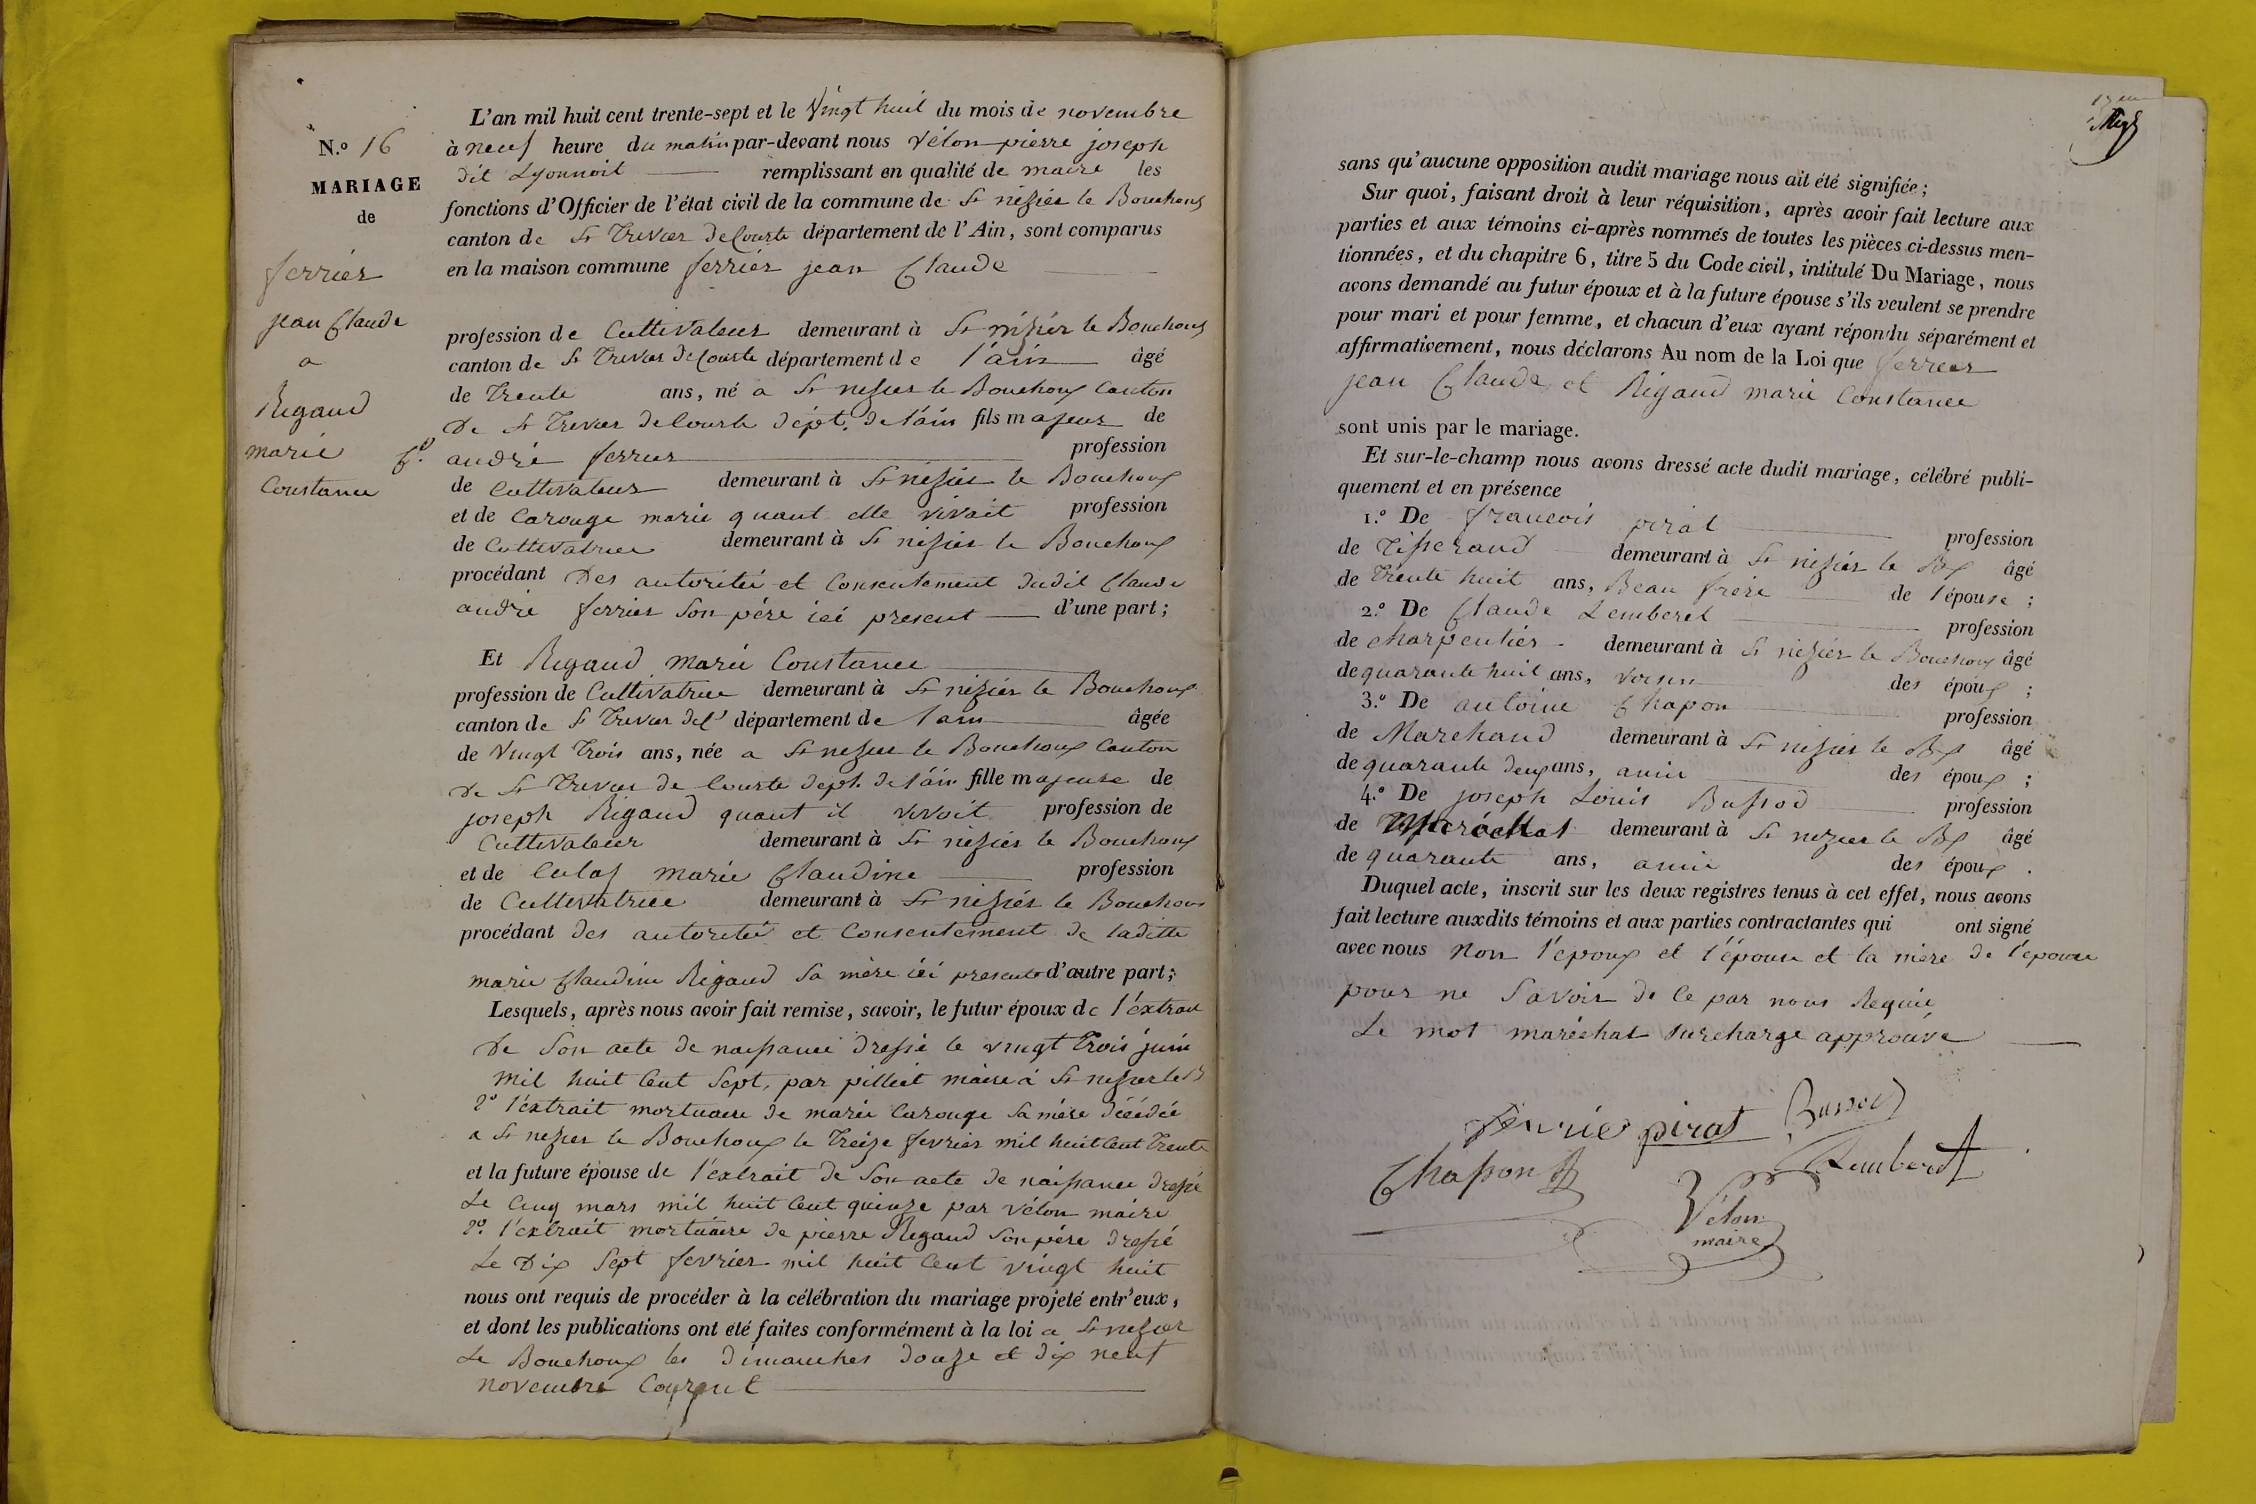 N.º 16
MARIAGE
de
ferrier
jean Claude
a
Rigaud
marie
Constance
L'an mil huit cent trente-sept et le Vingt huit du mois de novembre
à neuf heure du matin par-devant nous Vélon pierre joseph
dit Lyonnoit remplissant en qualité de maire les
fonctions d'Officier de l'état civil de la commune de St nizier le Bouchoux
canton de St Trivier de Courte département de l'Ain, sont comparus
en la maison commune ferrier jean Claude
profession de Cultivateur demeurant à St nizier le Bouchoux
canton de St Trivier de Courte département de l'ain âgé
de Trente ans, né a St nizier le Bouchoux Canton
De St Trivier de Courte dépt. de l'ain fils majeur de
Cd. andré ferrier profession
de Cultivateur demeurant à St nizier le Bouchoux
et de Carouge marie quant elle vivait profession
de Cultivatrice demeurant à St nizier le Bouchoux
procédant des autorité et Consentement dudit Claude
andré ferrier Son père ici present d'une part ;
Et Rigaud marie Constance
profession de Cultivatrice demeurant à St nizier le Bouchoux
canton de St Trivier de Ct département de l'ain âgée
de Vingt Trois ans, née a St nizier le Bouchoux Canton
De St Trivier de Courte dépt. de l'ain fille majeure de
joseph Rigaud quant il vivoit profession de
Cultivateur demeurant à St nizier le Bouchoux
et de Culas marie Claudine profession
de Cultivatrice demeurant à St nizier le Bouchoux
procédant des autorité et Consentement de laditte
marie Claudine Rigaud Sa mère ici presente d'autre part ;
Lesquels, après nous avoir fait remise, savoir, le futur époux de l'éxtrait
De Son acte de naissance dressé le vingt Trois juin
mil huit Cent Sept, par pilliet maire à St nizier le B
2º l'éxtrait mortuaire de marie Carouge Sa mère décédée
a St nizier le Bouchoux le Treize fevrier mil huit Cent Trente
et la future épouse de l'éxtrait de Son acte de naissance dressé
Le Cinq mars mil huit Cent quinze par Vélon maire
2º. l'éxtrait mortuaire de pierre Rigaud Son père dressé
Le Dix Sept fevrier mil huit Cent vingt huit
nous ont requis de procéder à la célébration du mariage projeté entr'eux,
et dont les publications ont été faites conformément à la loi a St nizier
Le Bouchoux les dimanches douze et dix neuf
novembre Courant
sans qu'aucune opposition audit mariage nous ait été signifiée ;
Sur quoi, faisant droit à leur réquisition, après avoir fait lecture aux
parties et aux témoins ci-après nommés de toutes les pièces ci-dessus men-
tionnées, et du chapitre 6, titre 5 du Code civil, intitulé Du Mariage, nous
avons demandé au futur époux et à la future épouse s'ils veulent se prendre
pour mari et pour femme, et chacun d'eux ayant répondu séparément et
affirmativement, nous déclarons Au nom de la Loi que ferrier
jean Claude et Rigaud marie Constance
sont unis par le mariage.
Et sur-le-champ nous avons dressé acte dudit mariage, célébré publi-
quement et en présence
1.º De françois pirat profession
de Tisserand demeurant à St nizier le Bx âgé
de Trente huit ans, Beau frère de l'épouse ;
2.º De Claude Lemberet profession
de charpentier demeurant à St nizier le Bouchoux âgé
de quarante huit ans, voisin des époux ;
3.º De antoine Chapon profession
de Marchand demeurant à St nizier le Bx âgé
de quarante deux ans, amis des époux ;
4.º De joseph Louis Bussod profession
de Maréchal demeurant à St nizier le Bx âgé
de quarante ans, amie des époux .
Duquel acte, inscrit sur les deux registres tenus à cet effet, nous avons
fait lecture auxdits témoins et aux parties contractantes qui ont signé
avec nous Non l'epoux et l'épouse et la mère de l'epouse
pour ne Savoir de Ce par nous Requis
Le mot maréchal Surcharge approuvé
pirat Bussod
Chapon Lemberet
Vélon
maire